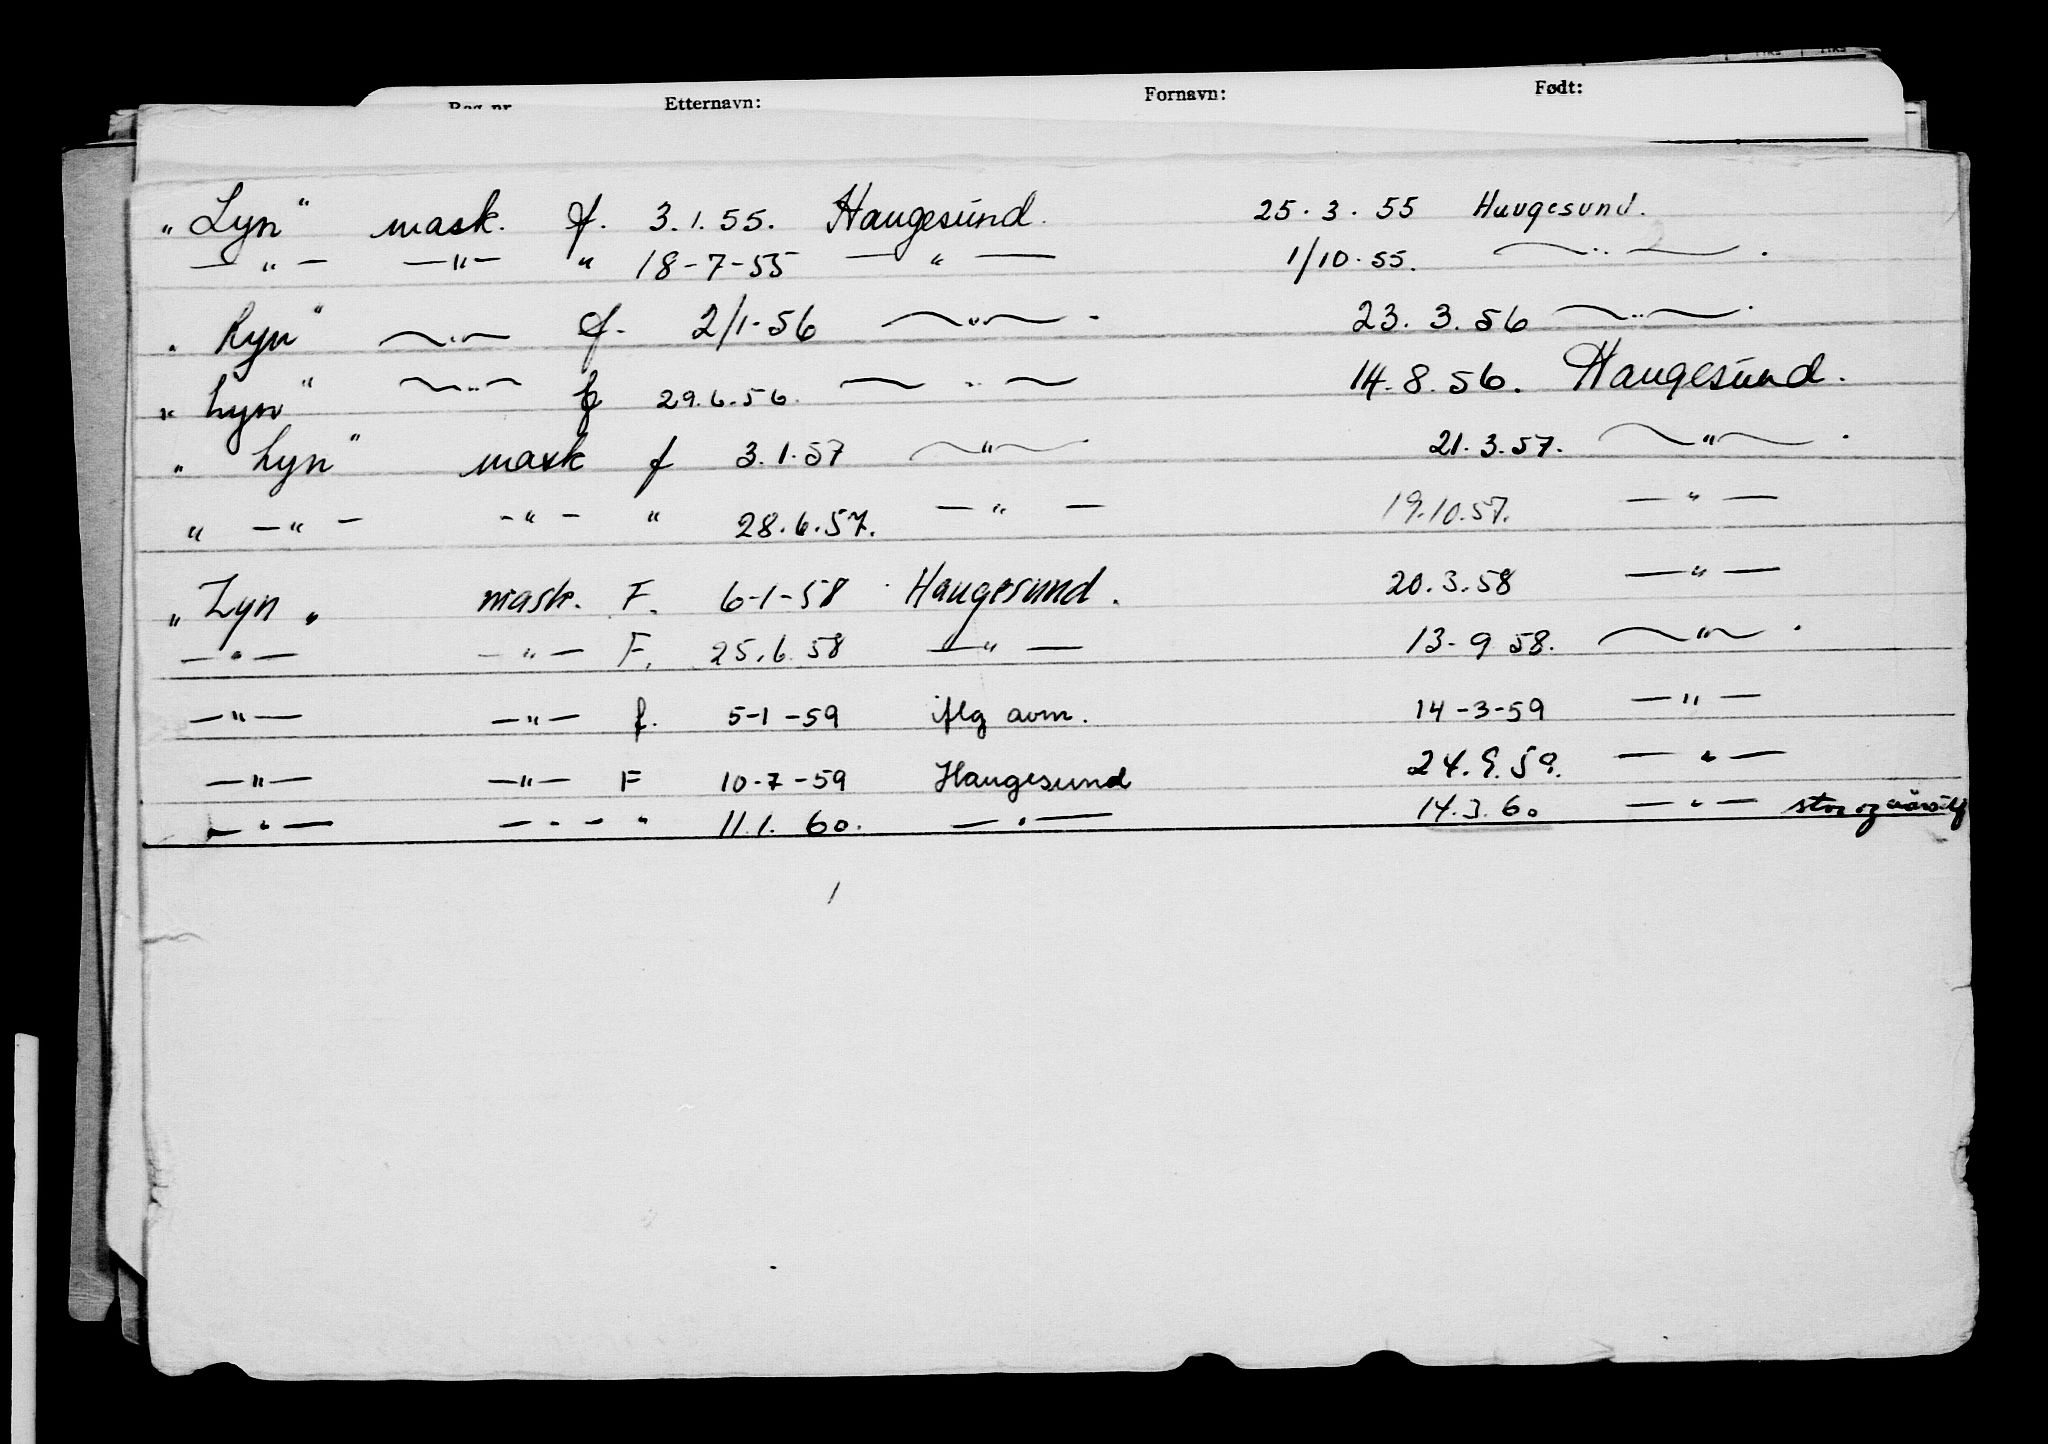 Etternavn: Fornavn: Født:
"Lyn" mask. f. 3.1.55. Haugesund. 25.3.55 Haugesund.
—"— —"— " 18-7-55 —"— 1/10.55. —"— .
"Lyn" —"— f. 2/1-56 —"— . 23.3.56 —"— .
"Lyn" —"— f 29.6.56. —"— 14.8.56. Haugesund.
"Lyn" mask f 3.1.57 —"— 21.3.57. —"— .
" —"— —"— " 28.6.57. —"— 19.10.57. —"—
"Lyn" mask. F. 6-1-58 Haugesund. 20.3.58 —"—
—"— —"— F. 25.6.58 —"— 13-9 58. —"— .
—"— —"— f. 5-1-59 iflg avm. 14-3-59 —"—
—"— —"— F 10-7-59 Haugesund 24.9.59. —"—
—"— —"— " 11.1.60. —"— 14.3.60 —"— stor og